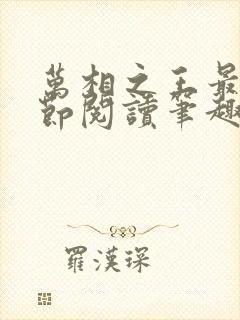 萬相之王最
節閱讀筆趣
羅漢琛